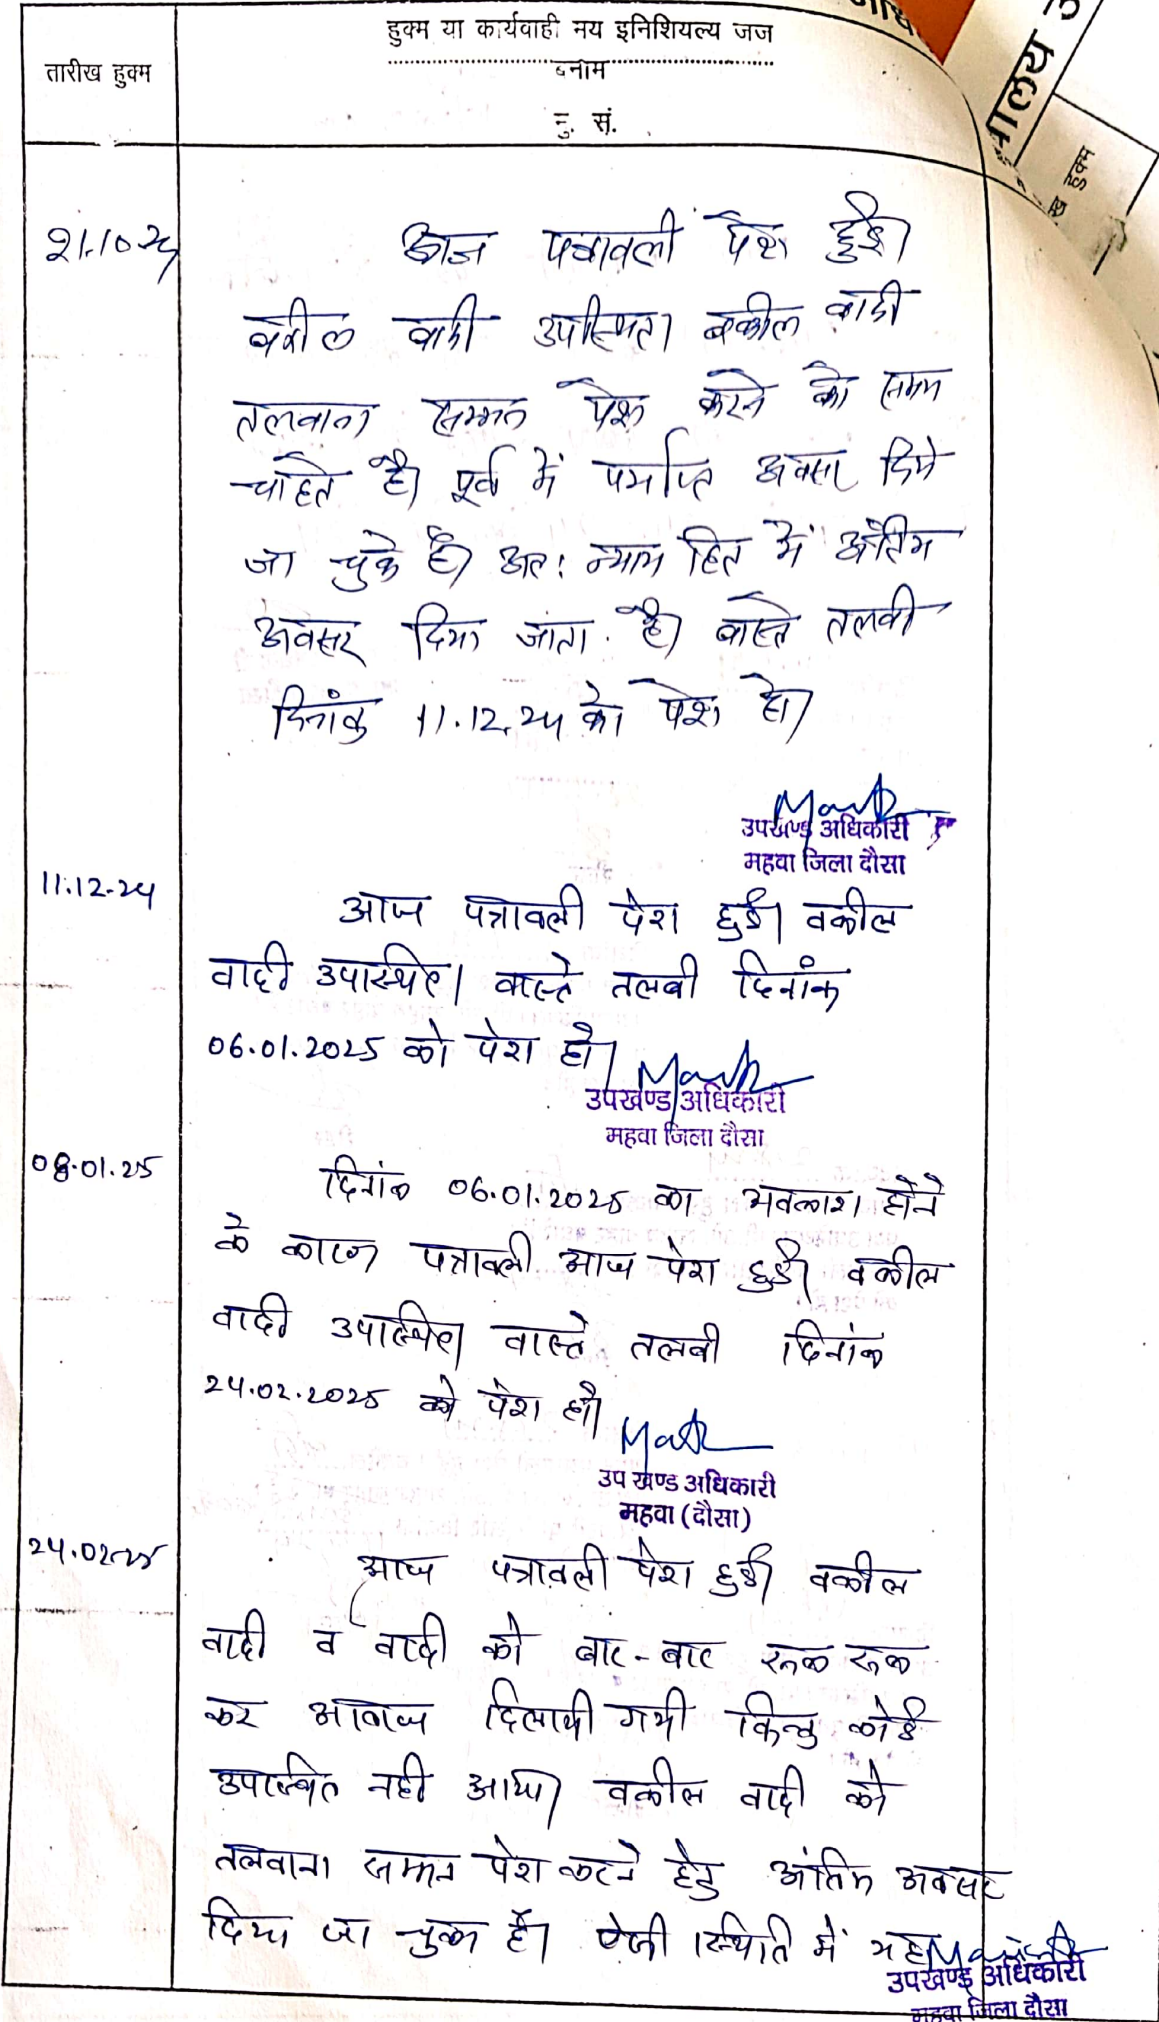 हुक्म या कार्यवाही मय इनिशियल्य जज
तारीख हुक्म
बनाम
नु. सं.
लय
हुक्म
21.10.24
आज पत्रावली पेश हुई।
वकील वादी उपस्थित। वकील वादी
तलवाना सम्मन पेश करने का समय
चाहते है। पूर्व में पर्याप्त अवसर दिये
जा चुके है। अतः न्याय हित में अंतिम
अवसर दिया जाता है। वास्ते तलवी
दिनांक 11.12.24 को पेश हो।
उपखण्ड अधिकारी
महवा जिला दौसा
11.12.24
आज पत्रावली पेश हुई। वकील
वादी उपस्थित। वास्ते तलबी दिनांक
06.01.2025 को पेश हो।
उपखण्ड अधिकारी
महवा जिला दौसा
08.01.25
दिनांक 06.01.2025 का अवकाश होने
के कारण पत्रावली आज पेश हुई। वकील
वादी उपस्थित। वास्ते तलबी दिनांक
24.02.2025 को पेश हो।
उप खण्ड अधिकारी
महवा (दौसा)
24.02.25
आज पत्रावली पेश हुई। वकील
वादी व वादी को बार-बार रूक रूक
कर आवाज दिलायी गयी किन्तु कोई
उपस्थित नही आया। वकील वादी को
तलवाना सम्मन पेश करने हेतु अंतिम अवसर
दिया जा चुका है। ऐसी स्थिति में यह
उपखण्ड अधिकारी
महवा जिला दौसा